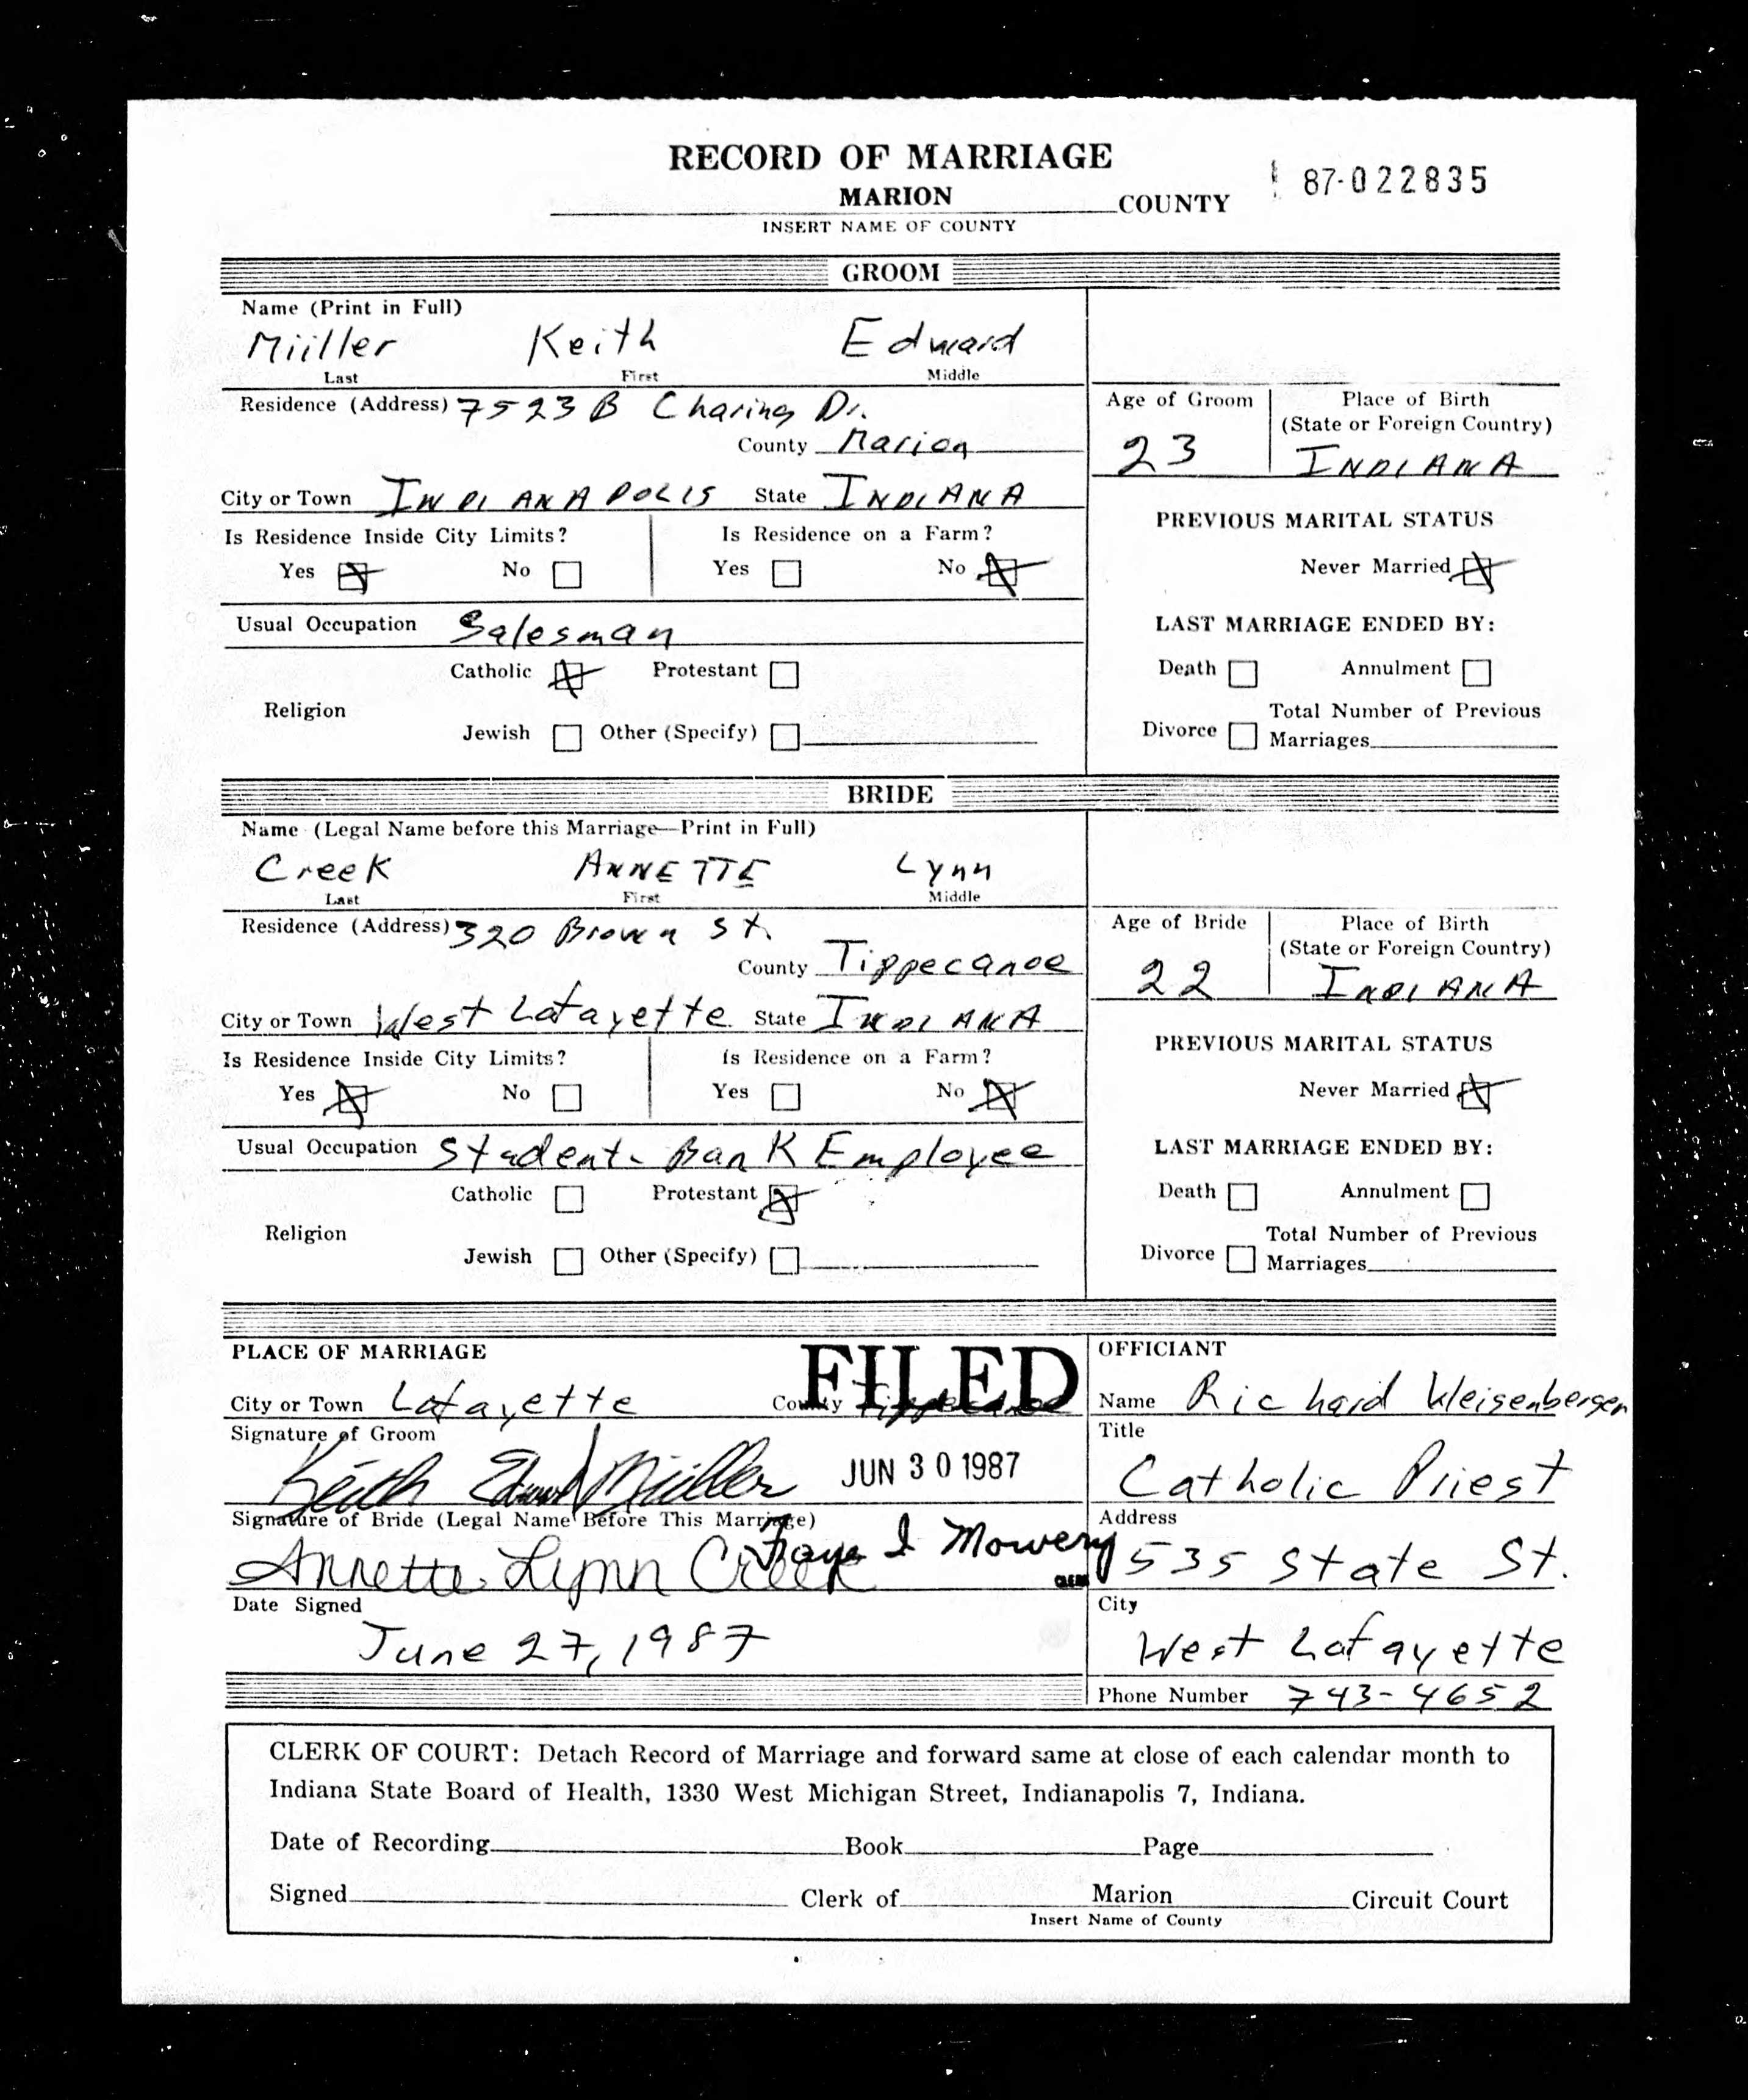 RECORD OF MARRIAGE
87-022835
MARION COUNTY
INSERT NAME OF COUNTY
GROOM
Name (Print in Full)
Miiller Keith Edward
Last First Middle
Residence (Address) 7523 B Charing Dr.
County Marion
Age of Groom Place of Birth
(State or Foreign Country)
23 INDIANA
City or Town INDIANAPOLIS State INDIANA
Is Residence Inside City Limits? Is Residence on a Farm?
Yes No Yes No
PREVIOUS MARITAL STATUS
Never Married
Usual Occupation Salesman
LAST MARRIAGE ENDED BY:
Catholic Protestant
Death Annulment
Religion
Jewish Other (Specify)
Total Number of Previous
Divorce Marriages
BRIDE
Name (Legal Name before this Marriage—Print in Full)
Creek ANNETTE Lynn
Last First Middle
Residence (Address) 320 Brown St.
County Tippecanoe
Age of Bride Place of Birth
(State or Foreign Country)
22 INDIANA
City or Town West Lafayette State INDIANA
Is Residence Inside City Limits? Is Residence on a Farm?
Yes No Yes No
PREVIOUS MARITAL STATUS
Never Married
Usual Occupation Student - Bank Employee
LAST MARRIAGE ENDED BY:
Catholic Protestant
Death Annulment
Religion
Jewish Other (Specify)
Total Number of Previous
Divorce Marriages
PLACE OF MARRIAGE
FILED
City or Town Lafayette County Tippecanoe
Signature of Groom
Keith Edward Miiller
JUN 30 1987
Signature of Bride (Legal Name Before This Marriage)
Faye I Mowery
CLERK
Annette Lynn Creek
Date Signed
June 27, 1987
OFFICIANT
Name Richard Weisenberger
Title
Catholic Priest
Address
535 State St.
City
West Lafayette
Phone Number 743-4652
CLERK OF COURT: Detach Record of Marriage and forward same at close of each calendar month to
Indiana State Board of Health, 1330 West Michigan Street, Indianapolis 7, Indiana.
Date of Recording Book Page
Signed Clerk of Marion Circuit Court
Insert Name of County